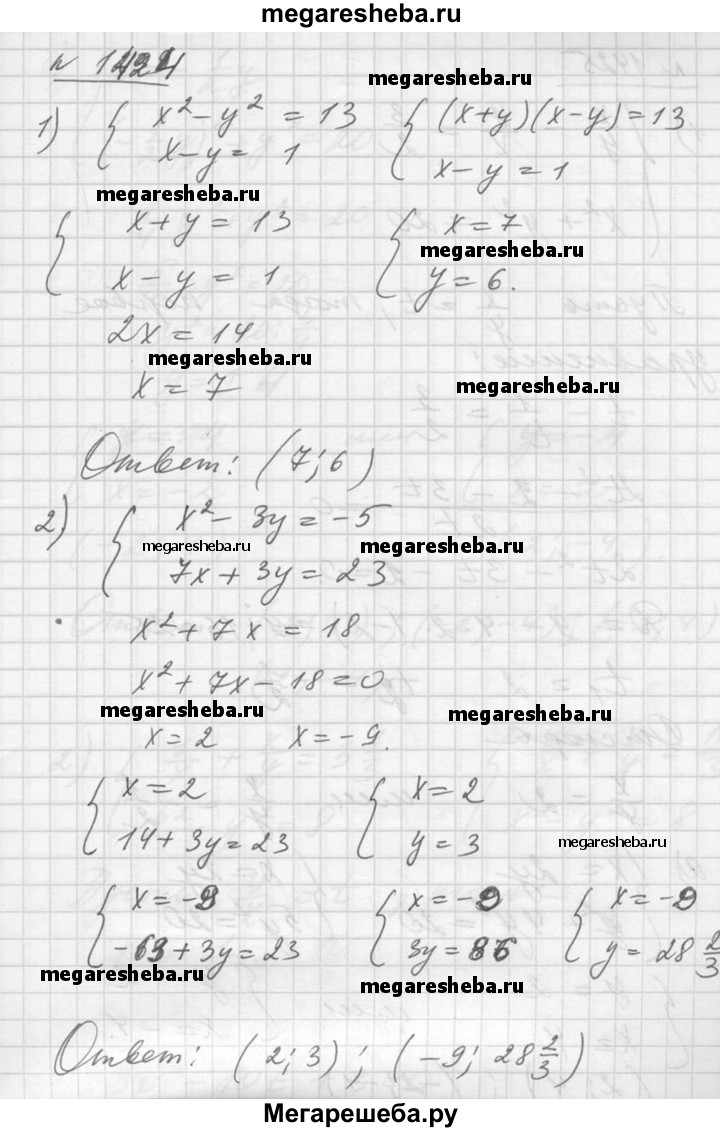 megaresheba.ru
n 1424
megaresheba.ru
1) { x² - y² = 13 { (x+y)(x-y) = 13
x - y = 1 x - y = 1
megaresheba.ru
{ x + y = 13 { x = 7
megaresheba.ru
x - y = 1 y = 6.
2x = 14
megaresheba.ru
x = 7
megaresheba.ru
Ответ: (7; 6)
2) { x² - 3y = -5
megaresheba.ru megaresheba.ru
7x + 3y = 23
x² + 7x = 18
x² + 7x - 18 = 0
megaresheba.ru megaresheba.ru
x = 2 x = -9.
{ x = 2 { x = 2
14 + 3y = 23 y = 3
megaresheba.ru
{ x = -9 { x = -9 { x = -9
-63 + 3y = 23 3y = 86 y = 28 2/3
megaresheba.ru megaresheba.ru
Ответ: (2; 3); (-9; 28 2/3)
Мегарешеба.ру